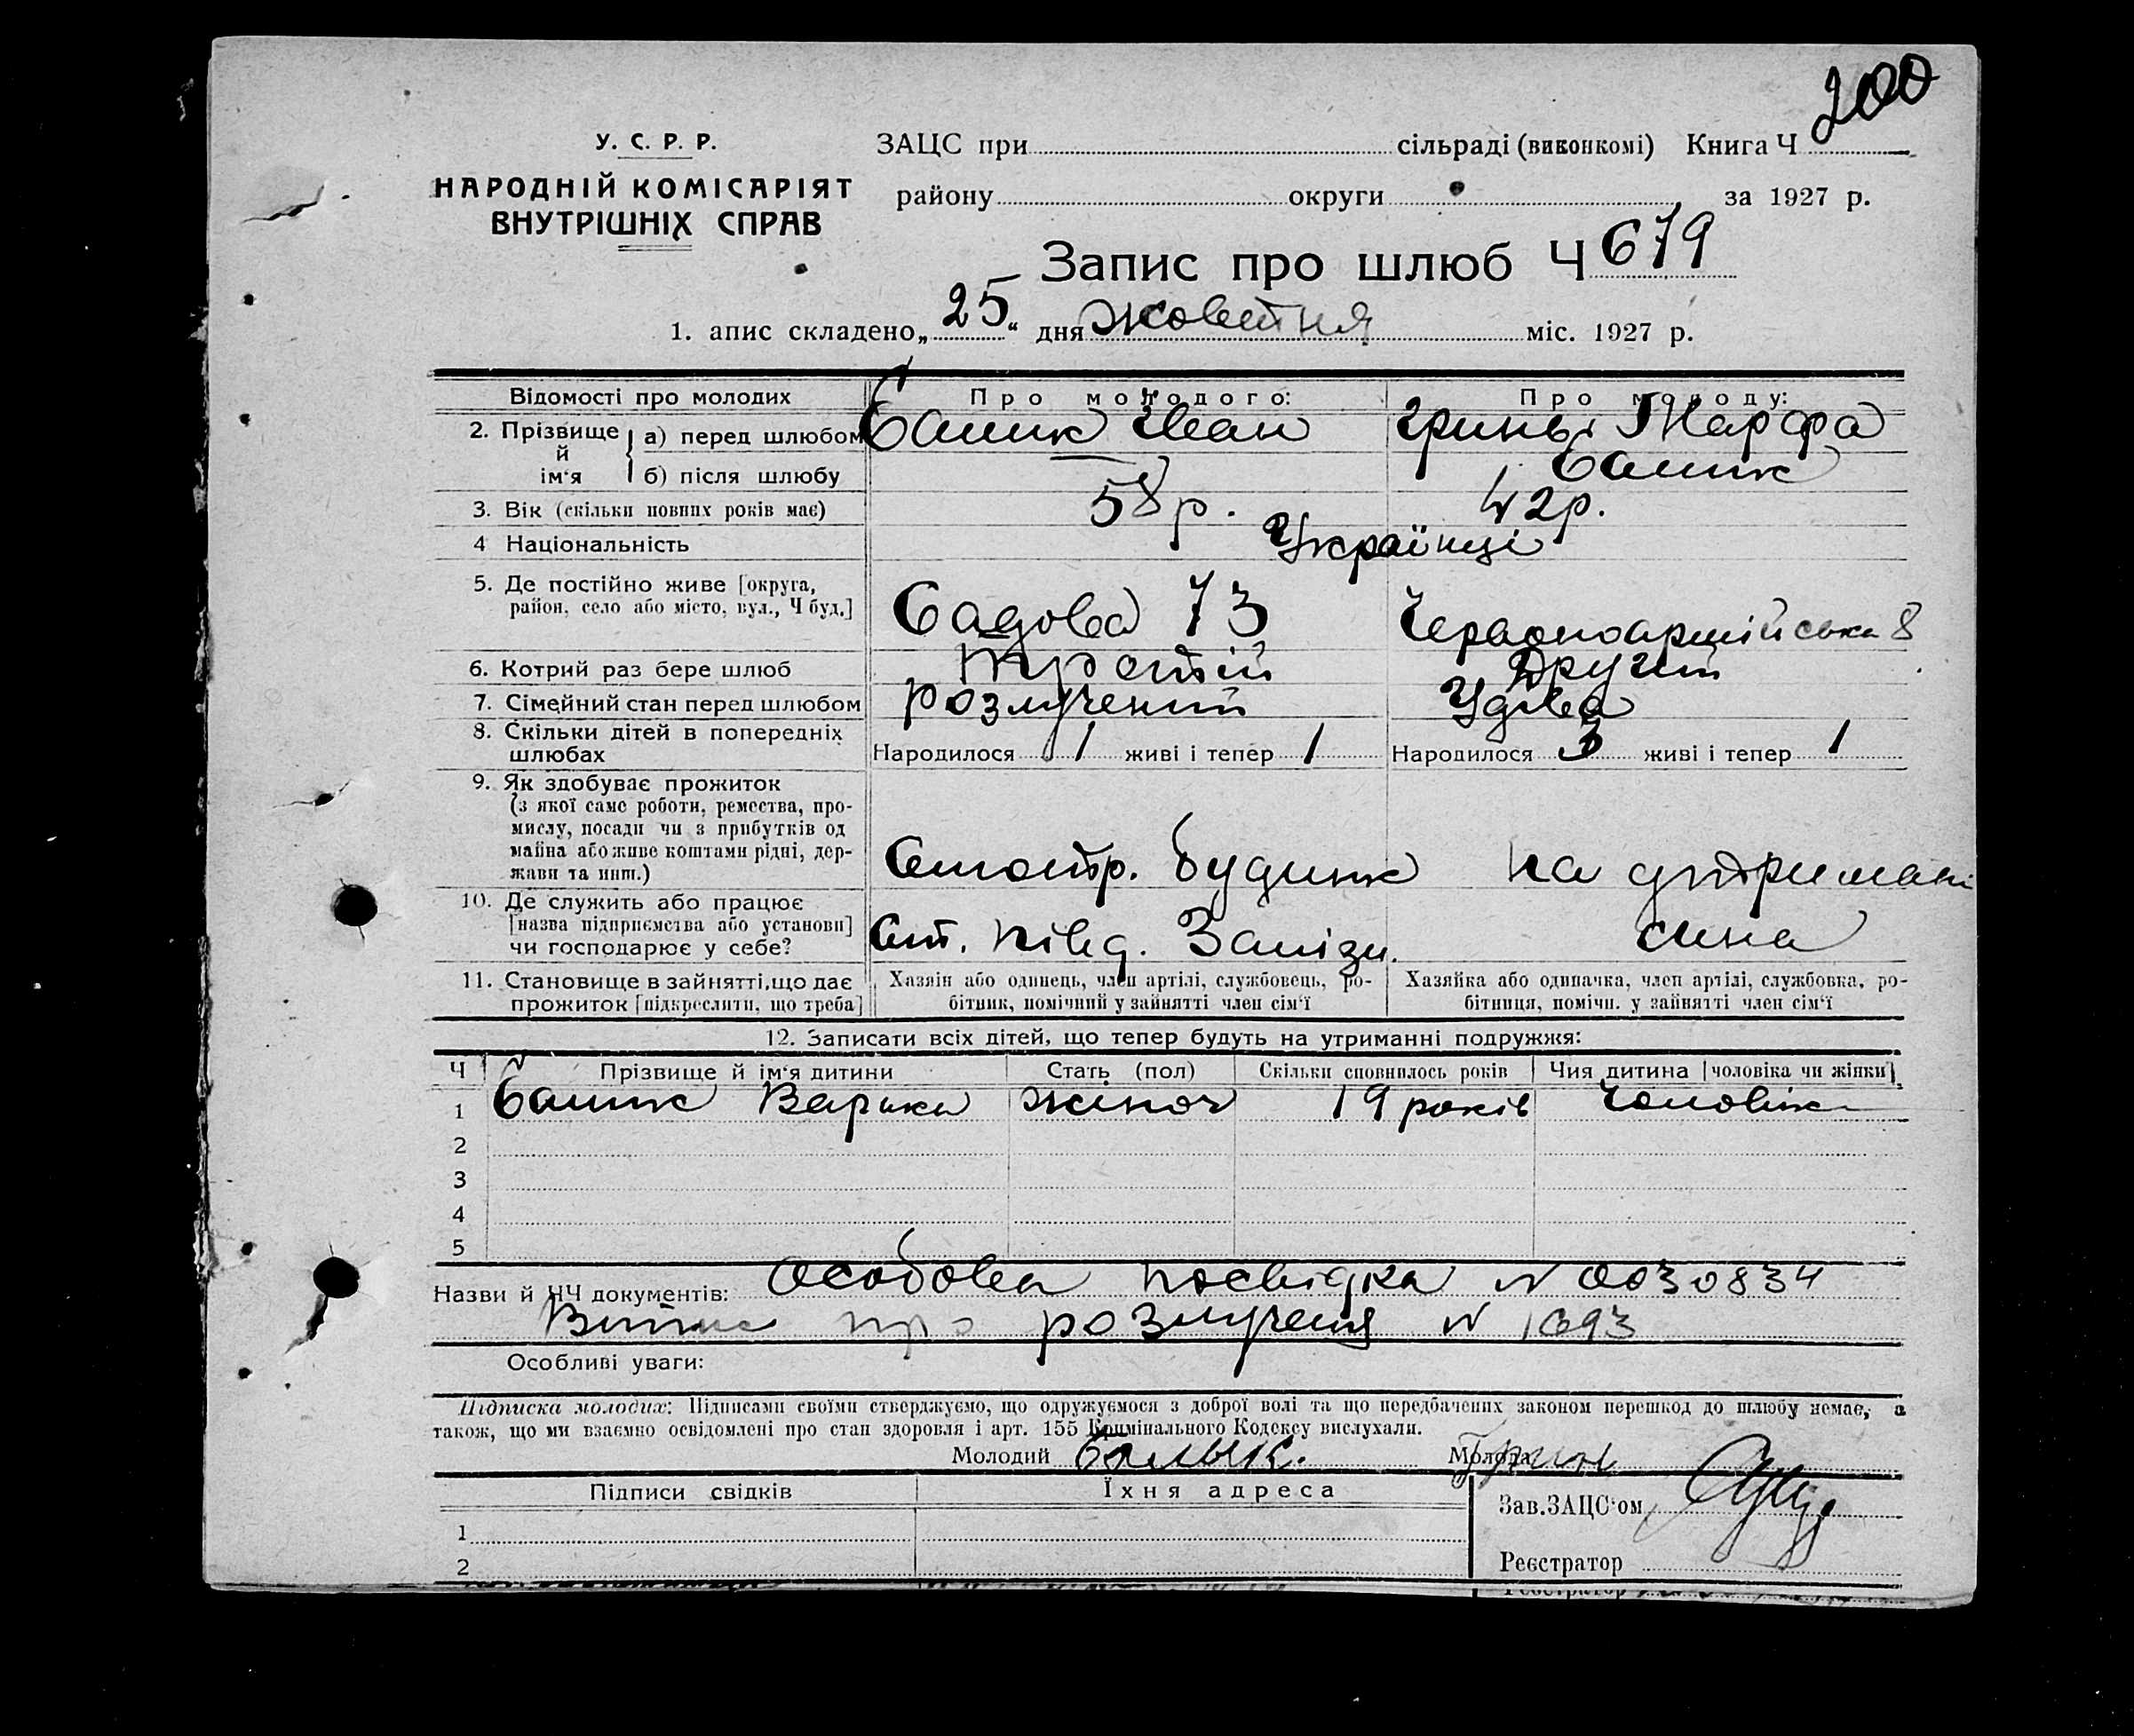 200
У. С. Р. Р.
НАРОДНІЙ КОМІСАРІЯТ
ВНУТРІШНІХ СПРАВ
ЗАЦС при сільраді (виконкомі) Книга Ч
району округи за 1927 р.
Запис про шлюб Ч 679
1. апис складено „25“ дня жовтня міс. 1927 р.
Відомості про молодих Про молодого: Про молоду:
2. Прізвище й ім'я а) перед шлюбом Балик Іван Гринь Марфа
б) після шлюбу Балик
3. Вік (скільки повних років має) 58 р. 42 р.
4 Національність Українці
5. Де постійно живе [округа,
район, село або місто, вул., Ч буд.] Садова 73 Червоноармійська 8
6. Котрий раз бере шлюб Третій Другий
7. Сімейний стан перед шлюбом розлучений Удова
8. Скільки дітей в попередніх
шлюбах Народилося 1 живі і тепер 1 Народилося 3 живі і тепер 1
9. Як здобуває прожиток
(з якої саме роботи, ремества, про-
мислу, посади чи з прибутків од
майна або живе коштами рідні, дер-
жави та инш.) будинк на утримані
10. Де служить або працює
[назва підприємства або установи]
чи господарює у себе? Ст. Півд. Залізн. сина
11. Становище в зайнятті, що дає
прожиток [підкреслити, що треба]
Хазяін або одинець, член артілі, службовець, ро-
бітник, помічний у зайнятті член сім'ї
Хазяйка або одиначка, член артілі, службовка, ро-
бітниця, помічн. у зайнятті член сім'ї
12. Записати всіх дітей, що тепер будуть на утриманні подружжя:
Ч Прізвище й ім'я дитини Стать (пол) Скільки сповнилось років Чия дитина [чоловіка чи жінки]
1 Балик жіноч 19 років Чоловік
2
3
4
5
Назви й ЧЧ документів: Особова посвідка N 0030834
Витис про розлученя N 1693
Особливі уваги:
Підписка молодих: Підписами своїми стверджуємо, що одружуємося з доброї волі та що передбачених законом перешкод до шлюбу немає, а
також, що ми взаємно освідомлені про стан здоровля і арт. 155 Кримінального Кодексу вислухали.
Молодий Балык. Молода Грин
Підписи свідків Їхня адреса
Зав.ЗАЦС'ом
1
Реєстратор
2